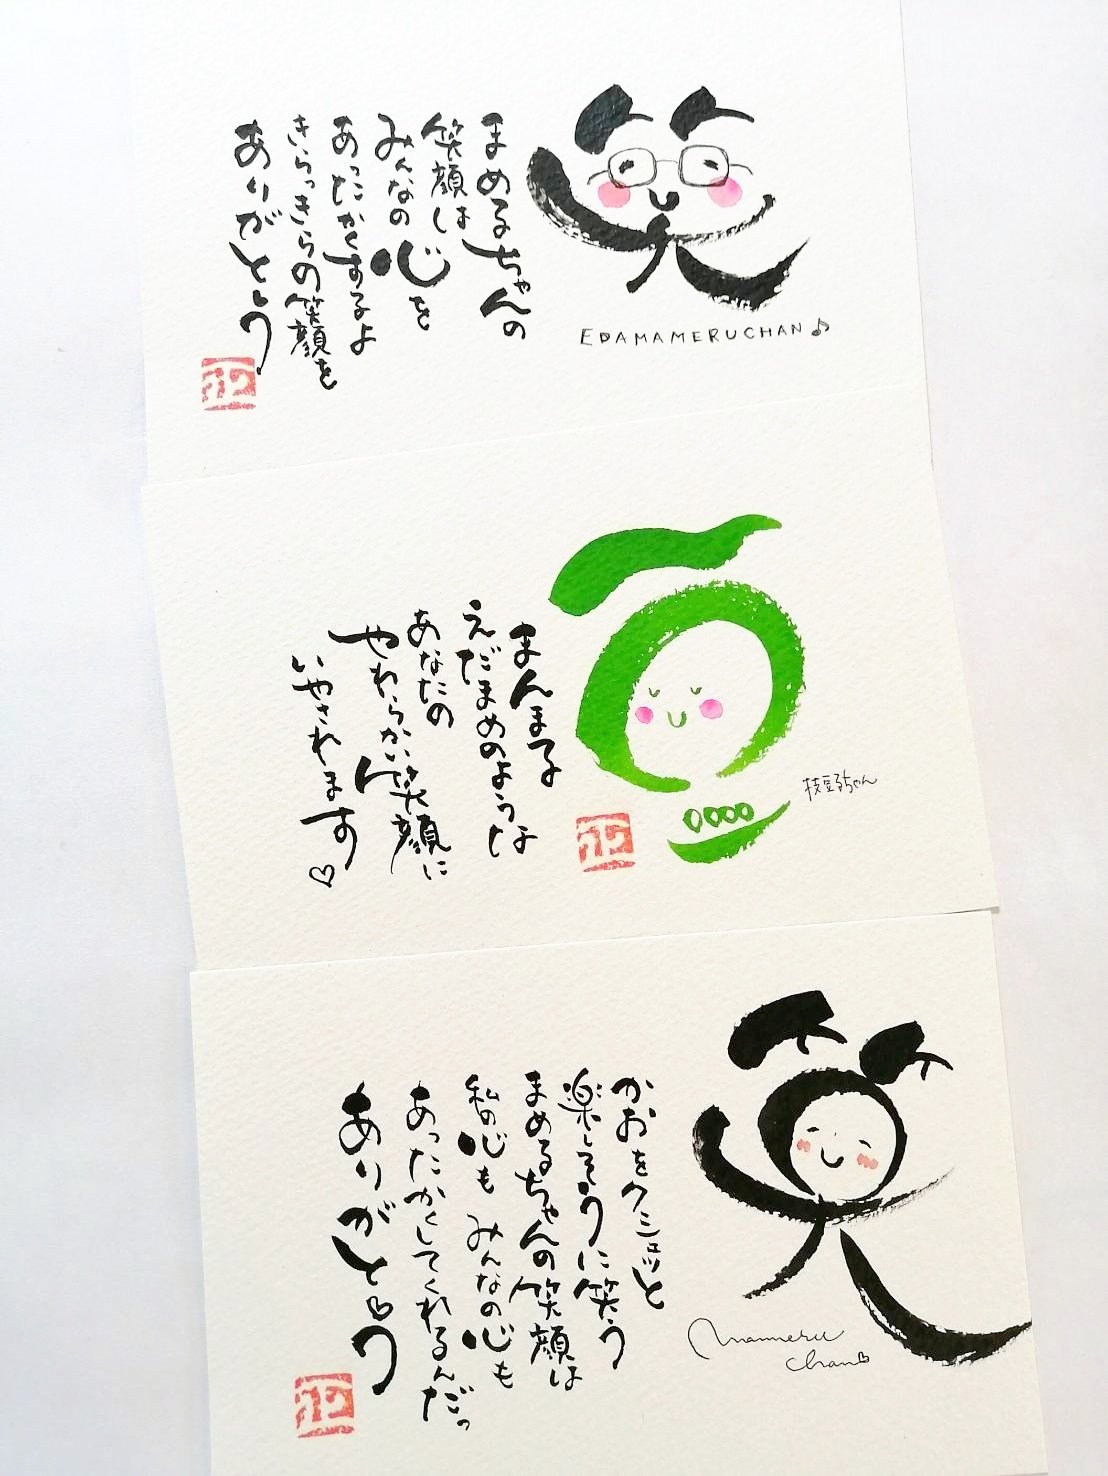 笑
EDAMAMERUCHAN♪
まめるちゃんの
笑顔は
みんなの心を
あったかくするよ
きらっきらの笑顔を
ありがとう
豆
枝豆るちゃん
まんまる
えだまめのような
あなたの
やわらかい笑顔に
いやされます♡
笑
mameru
chan♡
かおをクシュッと
楽しそうに笑う
まめるちゃんの笑顔は
私の心も みんなの心も
あったかくしてくれるんだっ
ありがとう